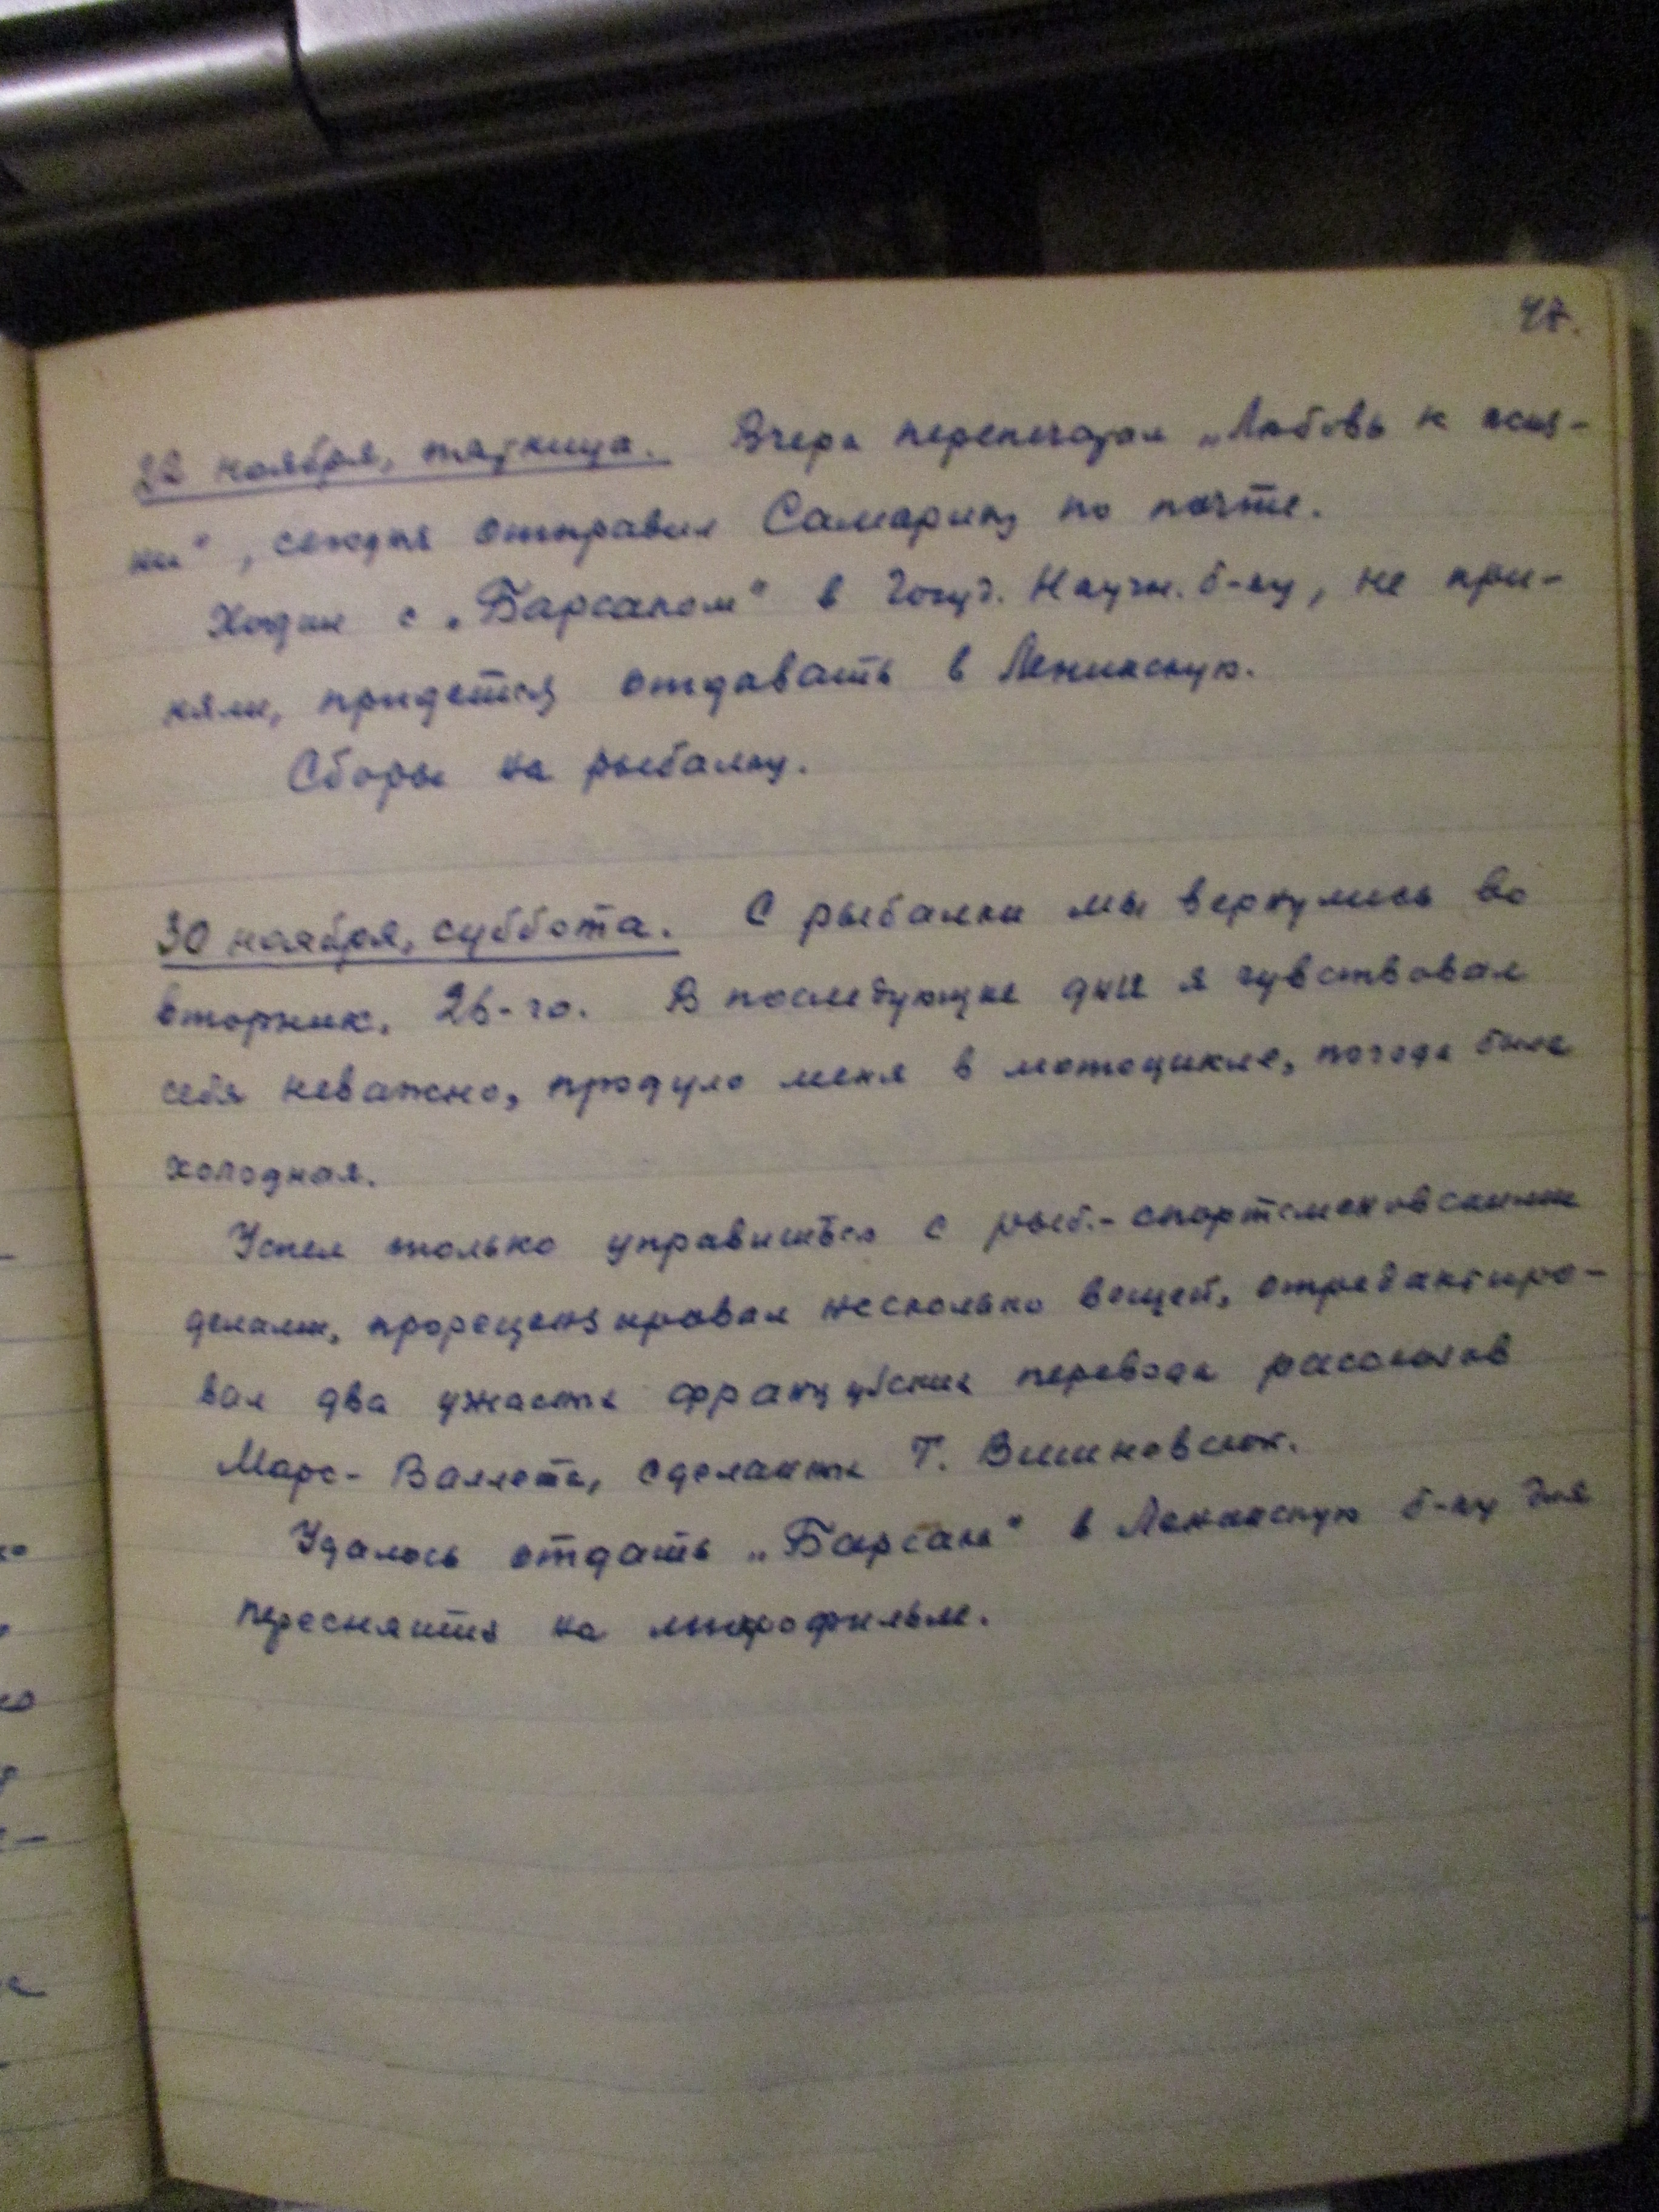 47.
22 ноября, пятница. Вчера перепечатал „Любовь к жиз-
ни", сегодня отправил Самарину по почте.
Ходил с „Барсаком" в Госуд. Научн. б-ку, не при-
няли, придется отдавать в Ленинскую.
Сборы на рыбалку.
30 ноября, суббота. С рыбалки мы вернулись во
вторник, 26-го. В последующие дни я чувствовал
себя неважно, продуло меня в мотоцикле, погода была
холодная.
Успел только управиться с рыб.-спортсменовскими
делами, прорецензировал несколько вещей, отредактиро-
вал два ужасных французских перевода рассказов
Марс-Валлета, сделанных Т.
Удалось отдать „Барсак" в Ленинскую б-ку для
пересъятия на микрофильм.